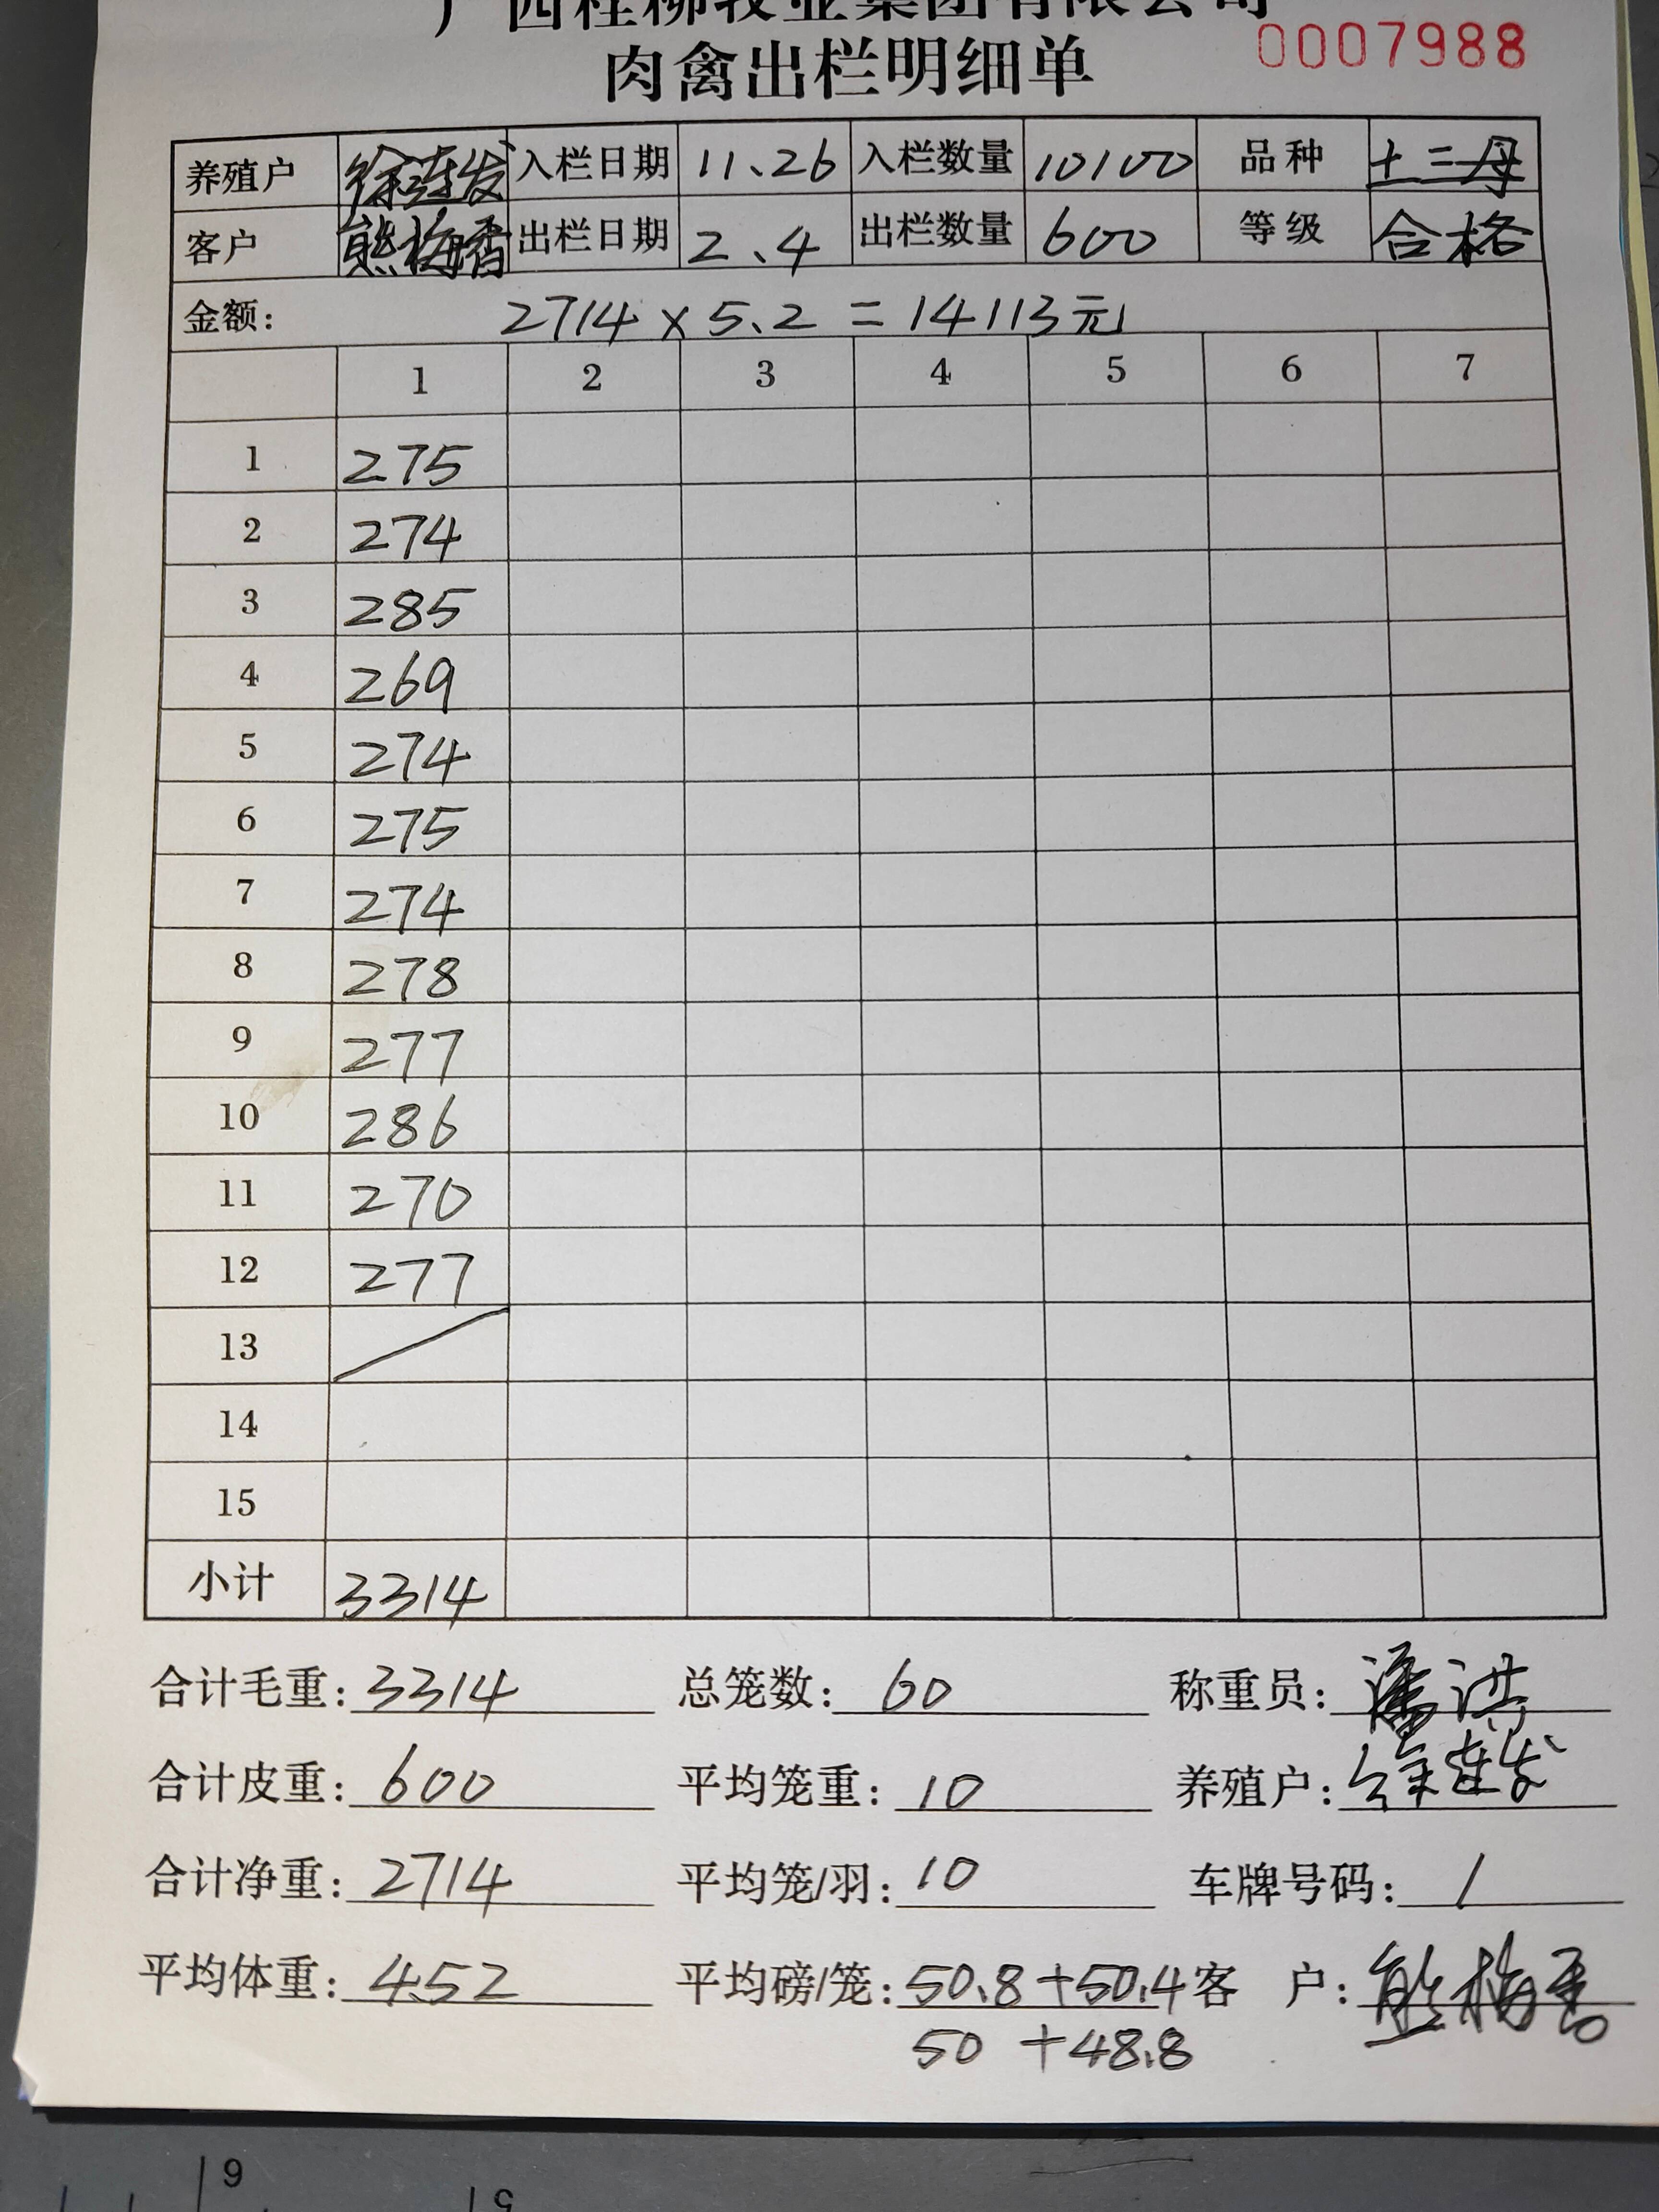 广西桂柳牧业集团有限公司
肉禽出栏明细单 0007988
养殖户 徐连发 入栏日期 11、26 入栏数量 10100 品种 土三母
客户 熊梅香 出栏日期 2、4 出栏数量 600 等级 合格
金额: 2714 x 5、2 = 14113元
1 2 3 4 5 6 7
1 275
2 274
3 285
4 269
5 274
6 275
7 274
8 278
9 277
10 286
11 270
12 277
13
14
15
小计 3314
合计毛重: 3314 总笼数: 60 称重员: 潘洪
合计皮重: 600 平均笼重: 10 养殖户: 徐连发
合计净重: 2714 平均笼/羽: 10 车牌号码: /
平均体重: 4.52 平均磅/笼: 50.8+50.4 客 户: 熊梅香
50 +48.8
6
5